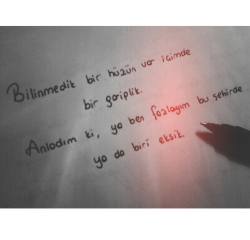 Bilinmedik bir hüzün var içimde
bir gariplik.
Anladım ki, ya ben fazlayım bu şehirde
ya da biri eksik.